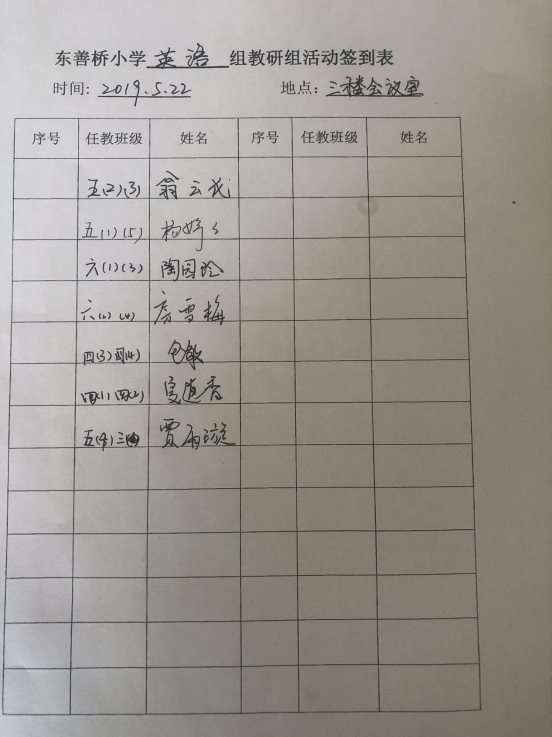 东善桥小学 英语 组教研组活动签到表
时间: 2019.5.22 地点: 三楼会议室
序号 任教班级 姓名 序号 任教班级 姓名
五(2)(3) 翁云龙
五(1)(5) 杨婷々
六(1)(3) 陶园玲
六(2)(4) 房雪梅
四(3)四(4) 敏
四(1)四(2) 夏道香
五(4)三 贾雨璇